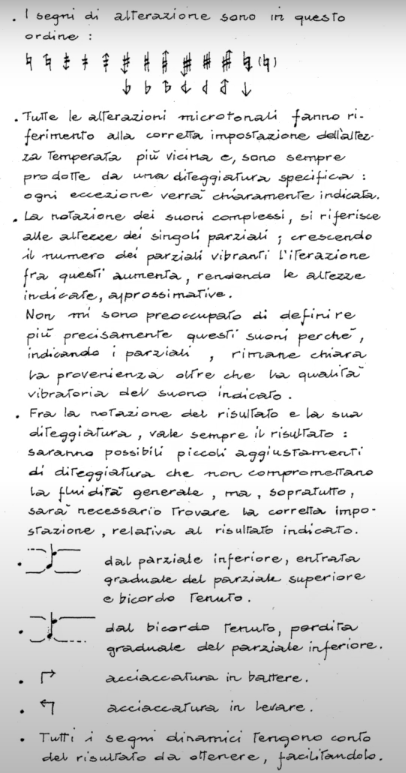 . I segni di alterazione sono in questo
ordine :
. Tutte le alterazioni microtonali fanno ri-
ferimento alla corretta impostazione dell'altez-
za temperata più vicina e, sono sempre
prodotte da una diteggiatura specifica :
ogni eccezione verrà chiaramente indicata.
. La notazione dei suoni complessi, si riferisce
alle altezze dei singoli parziali ; crescendo
il numero dei parziali vibranti l'iterazione
fra questi aumenta, rendendo le altezze
indicate, approssimative.
Non mi sono preoccupato di definire
più precisamente questi suoni perché,
indicando i parziali , rimane chiara
la provenienza oltre che la qualità
vibratoria del suono indicato .
. Fra la notazione del risultato e la sua
diteggiatura, vale sempre il risultato :
saranno possibili piccoli aggiustamenti
di diteggiatura che non compromettano
la fluidità generale, ma, sopratutto,
sarà necessario trovare la corretta impo-
stazione, relativa al risultato indicato.
. dal parziale inferiore, entrata
graduale del parziale superiore
e bicordo tenuto .
. dal bicordo tenuto, perdita
graduale del parziale inferiore.
. acciaccatura in battere.
. acciaccatura in levare .
. Tutti i segni dinamici tengono conto
del risultato da ottenere, facilitandolo.